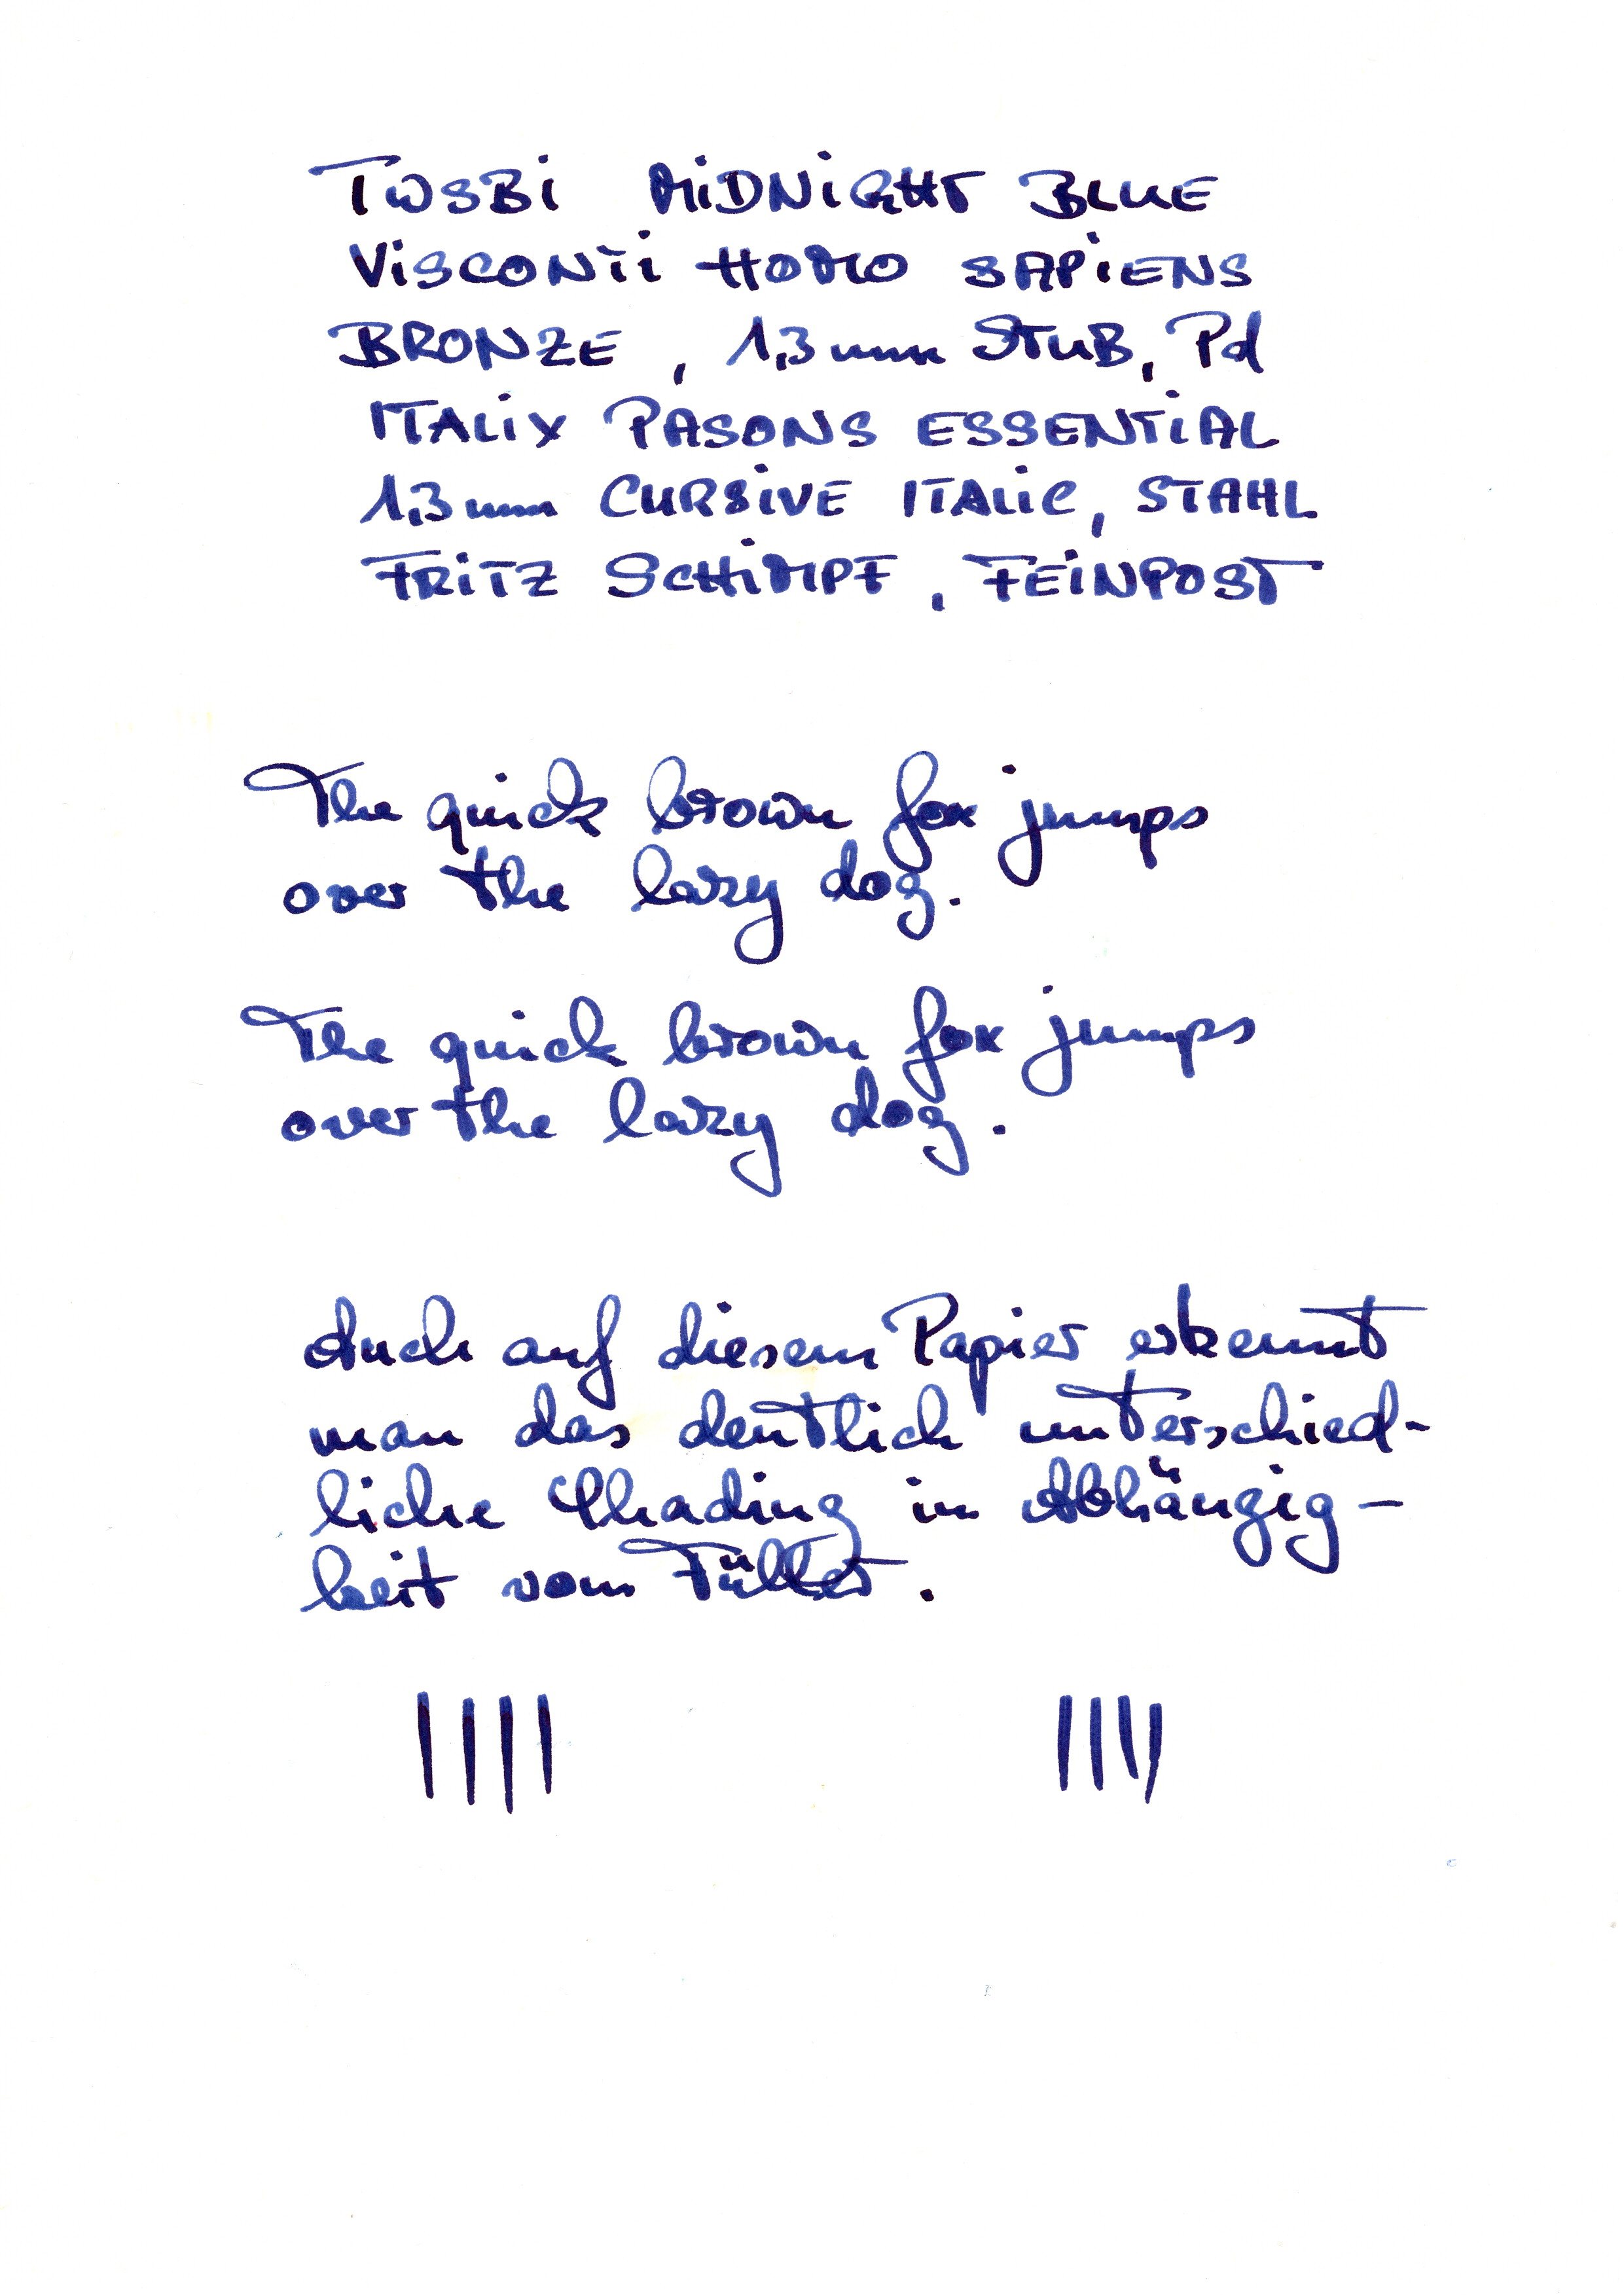 TWSBi MiDNiGHT BLUE
ViSCONTi HOMO SAPiENS
BRONZE, 1,3mm STUB, Pd
ITALiX PASONS ESSENTiAL
1,3mm CURSiVE ITALiC, STAHL
FRiTZ SCHiMPF, FEiNPOST
The quick brown fox jumps
over the lazy dog.
The quick brown fox jumps
over the lazy dog.
Auch auf diesem Papier erkennt
man das deutlich unterschied-
liche Shading in Abhängig-
keit vom Füller.